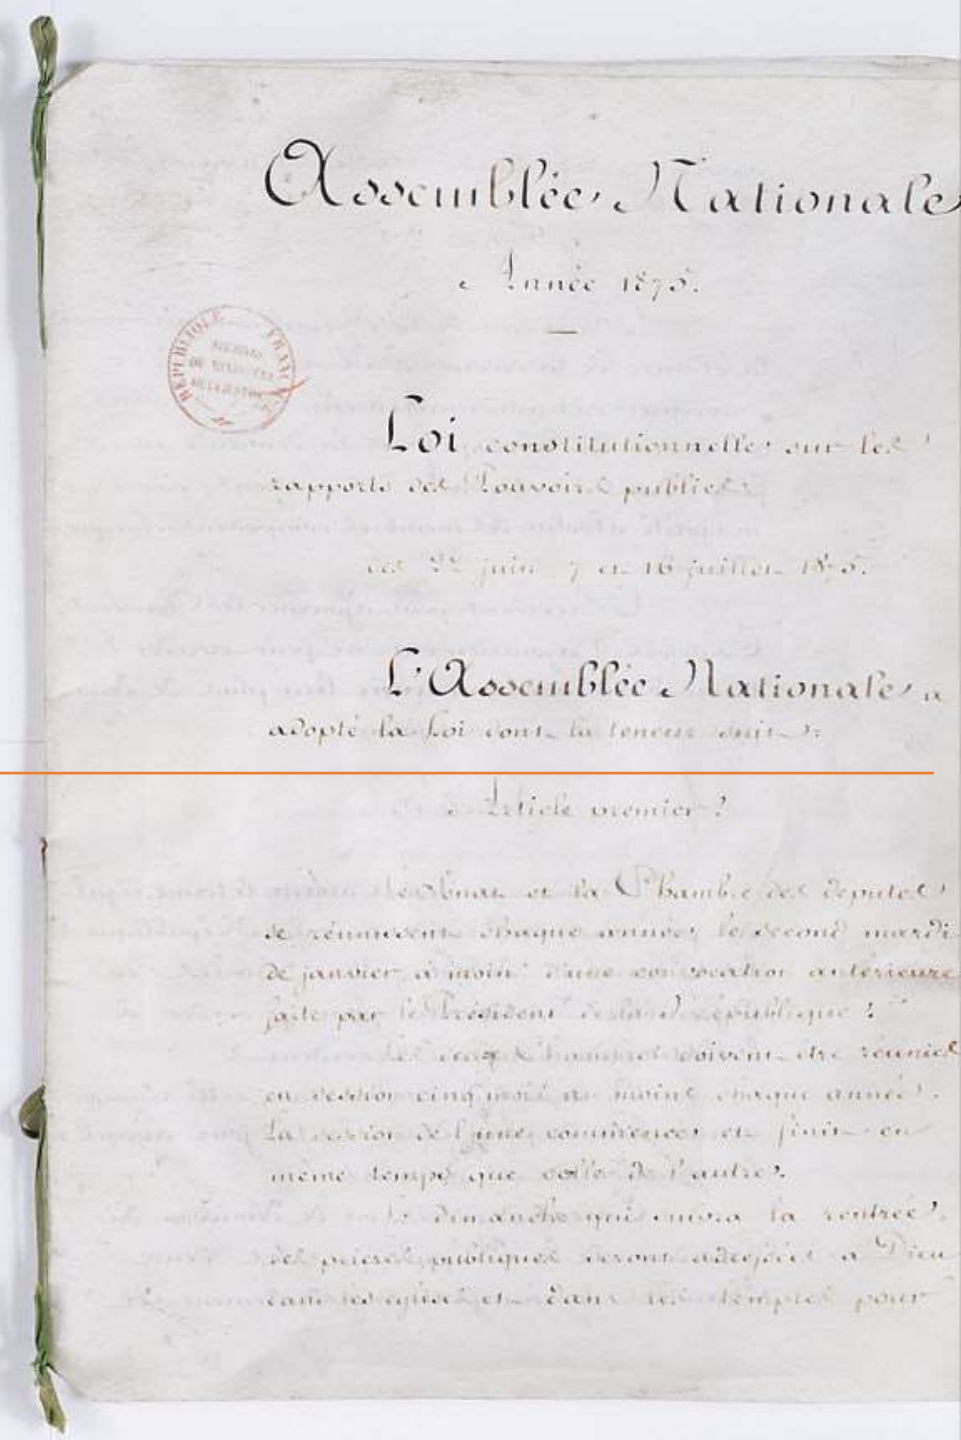 Assemblée Nationale
Année 1875.
RÉPUBLIQUE FRANÇ
Loi constitutionnelle sur les
rapports des Pouvoirs publics
des 22 juin 7 et 16 juillet 1875.
L'Assemblée Nationale a
adopté la Loi dont la teneur suit:
Article premier
Le Sénat et la Chambre des députés
se réunissent chaque année, le second mardi
de janvier, à moins d'une convocation antérieure
faite par le Président de la République.
Les deux Chambres doivent être réunies
en session cinq mois au moins chaque année.
La session de l'une commence et finit en
même temps que celle de l'autre.
Le dimanche qui suivra la rentrée,
des prières publiques seront adressées à Dieu
dans les églises et dans les temples pour